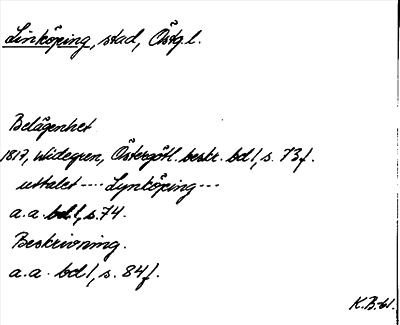 Linköping, stad, Östg.l.
Belägenhet
1817, Widegren, Östergötl. beskr. bd 1, s. 73 f.
uttalet ---- Lynköping ---
a.a. bd 1, s. 74.
Beskrivning.
a.a. bd 1, s. 84 f.
K.B-61.